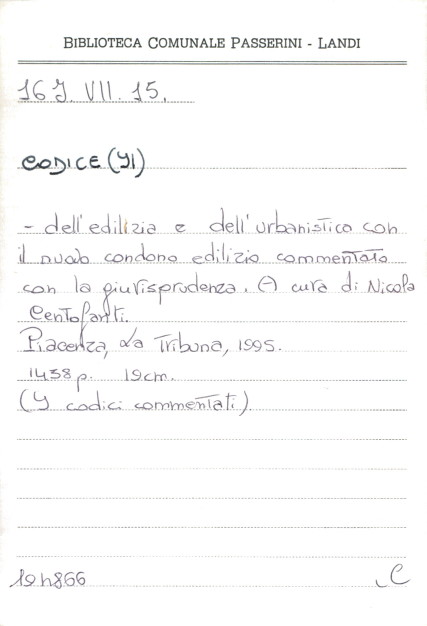 BIBLIOTECA COMUNALE PASSERINI - LANDI
16 J. VII. 15.
CODICE (Il)
- dell'edilizia e dell'urbanistica con
il nuovo condono edilizio commentato
con la giurisprudenza. A cura di Nicola
Centofanti.
Piacenza, La Tribuna, 1995.
1438 p. 19 cm.
(I codici commentati).
C